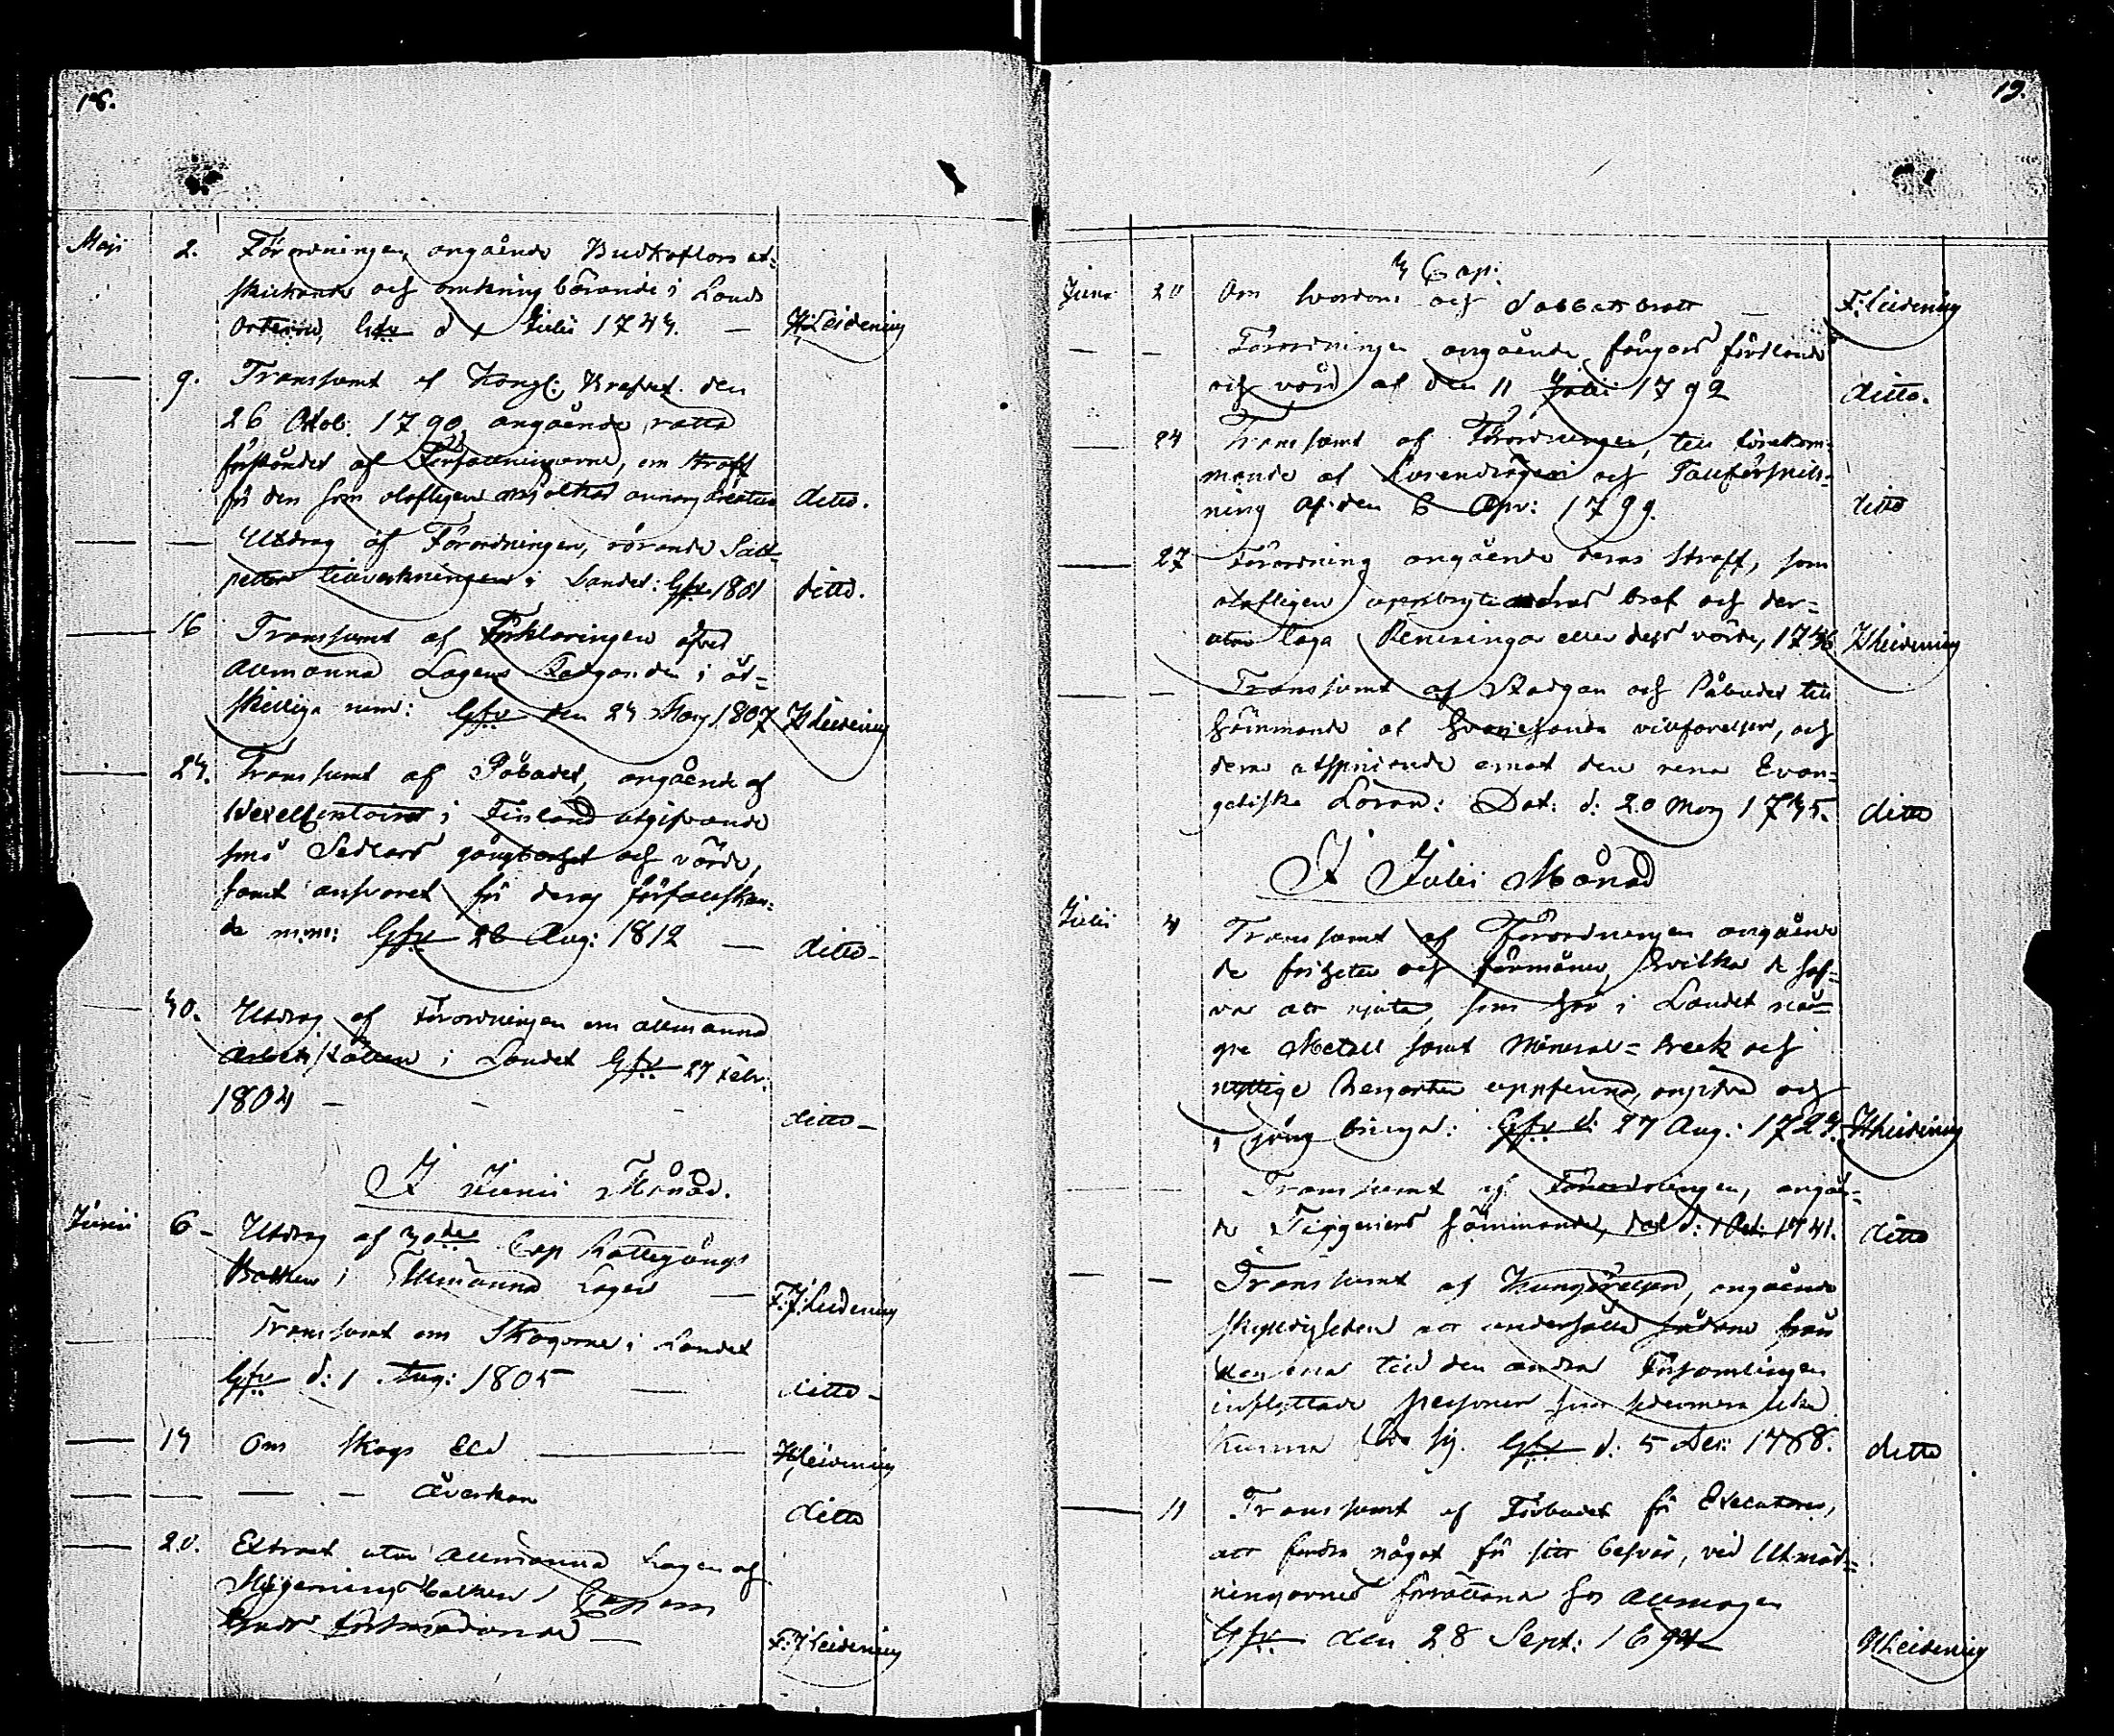 18.
Maji 2. Förordningen, angående Budkaflars ut-
skickande och omkring bärande i Lands
Orterne, Gifv: d 1 Julii 1744. — F.J. Leidenius
— 9. Transsumt af Kongl: Brefvet den
26 Octob: 1790, angående rätta
förståndet af Författningarne, om straff
för den som olofligen mjölkar annars kreatur ditto.
— — Utdrag af Förordningen, rörande Salt-
petter tillverkningen i Landet: Gifv. 1801 ditto.
— 16 Transsumt af Förklaringen öfver
Allmänna Lagens Stadganden i åt-
skilliga rum: Gifv den 24 Marg 1807 F.J. Leidenius
— 24. Transsumt af Påbudet, angående af
Wexelcontoiret i Finland utgifvande
små Sedlars gångbarhet och värde,
samt ansvaret för deras förfalskan-
de m:m: Gifv 26 Aug: 1812 — ditto —
30. Utdrag af Förordningen om allmänna
arbetsställen i Landet Gifv. 27 Febr.
1804 — — — ditto —
I Junii Månad.
Junii 6 — Utdrag af 30de Cap Rättegångs
Balken i Allmänna Lagen — F.J. Leidenius
— Transsumt om Skogarne i Landet
Gifv d: 1 Aug: 1805 — ditto —
— 14 Om Skogs Eld — F.J. Leidenius
— — — — Åverkan ditto
— 20. Extract utur Allmänna Lagen af
Missgernings Balken 1 Cap om
F.J. Leidenius
19.
3 Cap:
Junii 20 Om svordom och Sabbatsbrott — F. Leidenius
— — Förordningen angående, fångars förtärande
och vård af den 11 Julii 1792 ditto.
— 24 Transsumt af Förordningen, till förekom-
mande af Lurendrägeri och Tullförskill-
ning Af den 6 Apr: 1799. ditto
— 27 Förordning angående deras straff, som
olofligen uppbryta andras bref och der-
utur taga Penningar eller dess värde, 1746 F.J. Leidenius
— — Transsumt af Stadgan och Påbudet till
hämmande af hvarjehanda villfarelser, och
deras utspridande emot den rena Evan-
geliska Läran: Dat: d: 20 Marg 1735. ditto
I Julii Månad
Julii 4 Transsumt af Förordningen angåen
de friheter och förmåner, hvilka de haf-
va att njuta, som här i Landet nå-
gre Metall samt Mineral-Streck och
nyttige Bergarter uppfinna, angifva och
i gång bringa: Gifv d: 27 Aug: 1723. F.J. Leidenius
— — Transsumt af Förordningen, angåen-
de Tiggeriets hämmande, dat d: 1 Oct: 1741. ditto
— — Transsumt af Kungörelsen, angående
skyldigheten att underhålla sådane från
den ena till den andra Församlingen
inflyttade personer som sedermera icke
kunna föda sig. Gifv d: 5 Dec: 1788. ditto
— 11 Transsumt af Förbudet för Executores,
att fordra något för sitt besvär, vid Utmät-
ningarnes förrättande hos Allmogen
Gifv. den 28 Sept: 1694 F.J. Leidenius